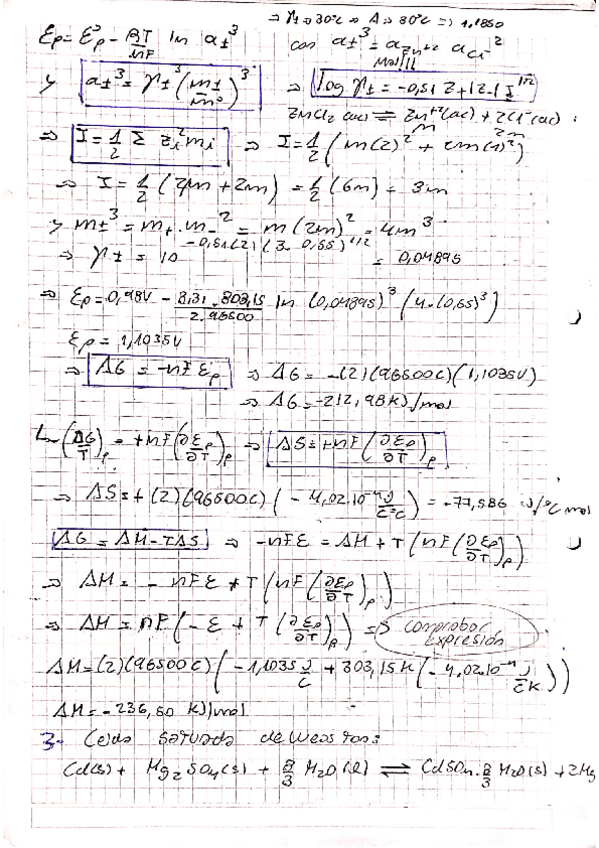 ⇒ γ± ⇒ 30°C ⇒ A ⇒ 30°C ⇒ 1.1850
Ep = E°p - RT/nF ln a±³ con a±³ = a Zn+2 a Cl-²
y a±³ = γ±³ (m±/m°)³ ⇒ log γ± = -0,51 Z+|Z-| I^1/2
ZnCl2 (ac) ⇌ Zn+2(ac) + 2Cl-(ac) :
m 2m
⇒ I = 1/2 Σ zi² mi ⇒ I = 1/2 (m(2)² + 2m(1)²)
⇒ I = 1/2 (4m + 2m) = 1/2 (6m) = 3m
y m±³ = m+ . m-² = m (2m)² = 4m³
⇒ γ± = 10^-0,51(2)(3.0,65)^1/2 = 0,04895
⇒ Ep = 0,98V - 8,31 . 303,15/2.96500 ln (0,04895)³ (4.(0,65)³)
Ep = 1,1035V
⇒ ΔG = -nF Ep ⇒ ΔG = -(2)(96500C)(1,1035V)
⇒ ΔG = -212,98 KJ/mol
(ΔG/T)p = +nF(∂Ep/∂T)p ⇒ ΔS = +nF(∂Ep/∂T)p
⇒ ΔS = + (2)(96500C) ( - 4,02.10^-4 J/C°C ) = -77,586 J/°C mol
ΔG = ΔH - TΔS ⇒ -nFE = ΔH + T(nF(∂Ep/∂T)p)
⇒ ΔH = - nFE + T(nF(∂Ep/∂T)p)
⇒ ΔH = nF(-E + T(∂Ep/∂T)p) ⇒ comprobar
expresión
ΔH = (2)(96500C)( -1,1035 J/C + 303,15K ( - 4,02.10^-4 J/CK ))
ΔH = -236,50 KJ/mol
3- Celda saturada de Weston:
Cd(s) + Hg2SO4(s) + 8/3 H2O(l) ⇌ CdSO4.8/3 H2O(s) + 2Hg